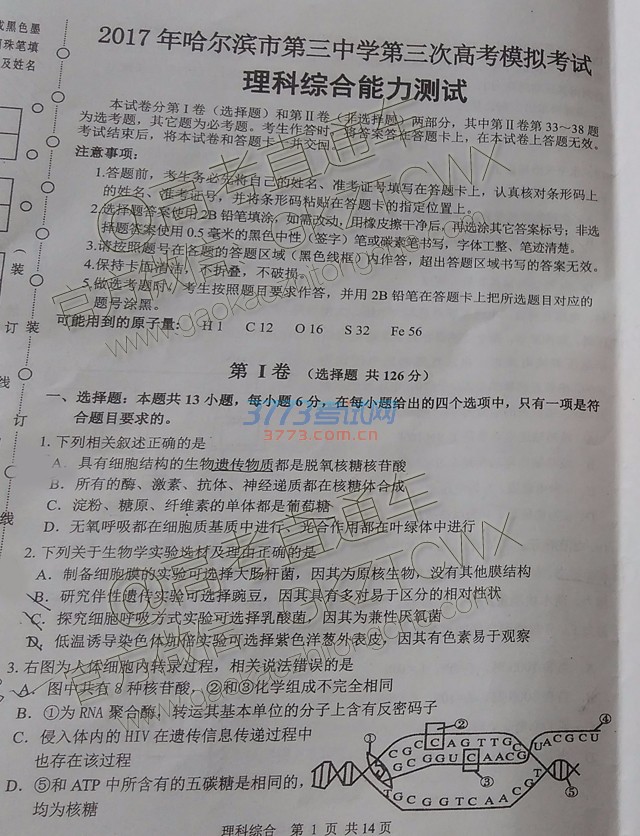 或黑色墨
珠笔填
及姓名
2017 年哈尔滨市第三中学第三次高考模拟考试
理科综合能力测试
本试卷分第 I 卷（选择题）和第 II 卷（非选择题）两部分，其中第 II 卷第 33～38 题
为选考题，其它题为必考题。考生作答时，将答案答在答题卡上，在本试卷上答题无效。
考试结束后，将本试卷和答题卡一并交回。
注意事项：
1.答题前，考生务必先将自己的姓名、准考证号填写在答题卡上，认真核对条形码上
的姓名、准考证号，并将条形码粘贴在答题卡的指定位置上。
2.选择题答案使用 2B 铅笔填涂，如需改动，用橡皮擦干净后，再选涂其它答案标号；非选
择题答案使用 0.5 毫米的黑色中性（签字）笔或碳素笔书写，字体工整、笔迹清楚。
3.请按照题号在各题的答题区域（黑色线框）内作答，超出答题区域书写的答案无效。
4.保持卡面清洁，不折叠，不破损。
5.做选考题时，考生按照题目要求作答，并用 2B 铅笔在答题卡上把所选题目对应的
题号涂黑。
可能用到的原子量： H 1 C 12 O 16 S 32 Fe 56
第 I 卷 （选择题 共 126 分）
一、选择题：本题共 13 小题，每小题 6 分，在每小题给出的四个选项中，只有一项是符
合题目要求的。
1. 下列相关叙述正确的是
A. 具有细胞结构的生物遗传物质都是脱氧核糖核苷酸
B. 所有的酶、激素、抗体、神经递质都在核糖体合成
C. 淀粉、糖原、纤维素的单体都是葡萄糖
D. 无氧呼吸都在细胞质基质中进行，光合作用都在叶绿体中进行
2. 下列关于生物学实验选材及理由正确的是
A. 制备细胞膜的实验可选择大肠杆菌，因其为原核生物，没有其他膜结构
B. 研究伴性遗传实验可选择豌豆，因其具有多对易于区分的相对性状
C. 探究细胞呼吸方式实验可选择乳酸菌，因其为兼性厌氧菌
D. 低温诱导染色体加倍实验可选择紫色洋葱外表皮，因其有色素易于观察
3. 右图为人体细胞内转录过程，相关说法错误的是
A. 图中共有 8 种核苷酸，②和③化学组成不完全相同
B. ①为 RNA 聚合酶，转运其基本单位的分子上含有反密码子
C. 侵入体内的 HIV 在遗传信息传递过程中
也存在该过程
D. ⑤和 ATP 中所含有的五碳糖是相同的，
均为核糖
① ② ③ ④ ⑤
CGCCAGTTGC
GCGGUCAACG
UACGCU
TGCGGTCAACGT
理科综合 第 1 页 共 14 页
（装
订
线
装
订
线
@高考直通车
官方微信：GKZTCWX
www.gaokaozhitongche.com
3773考试网
3773.com.cn